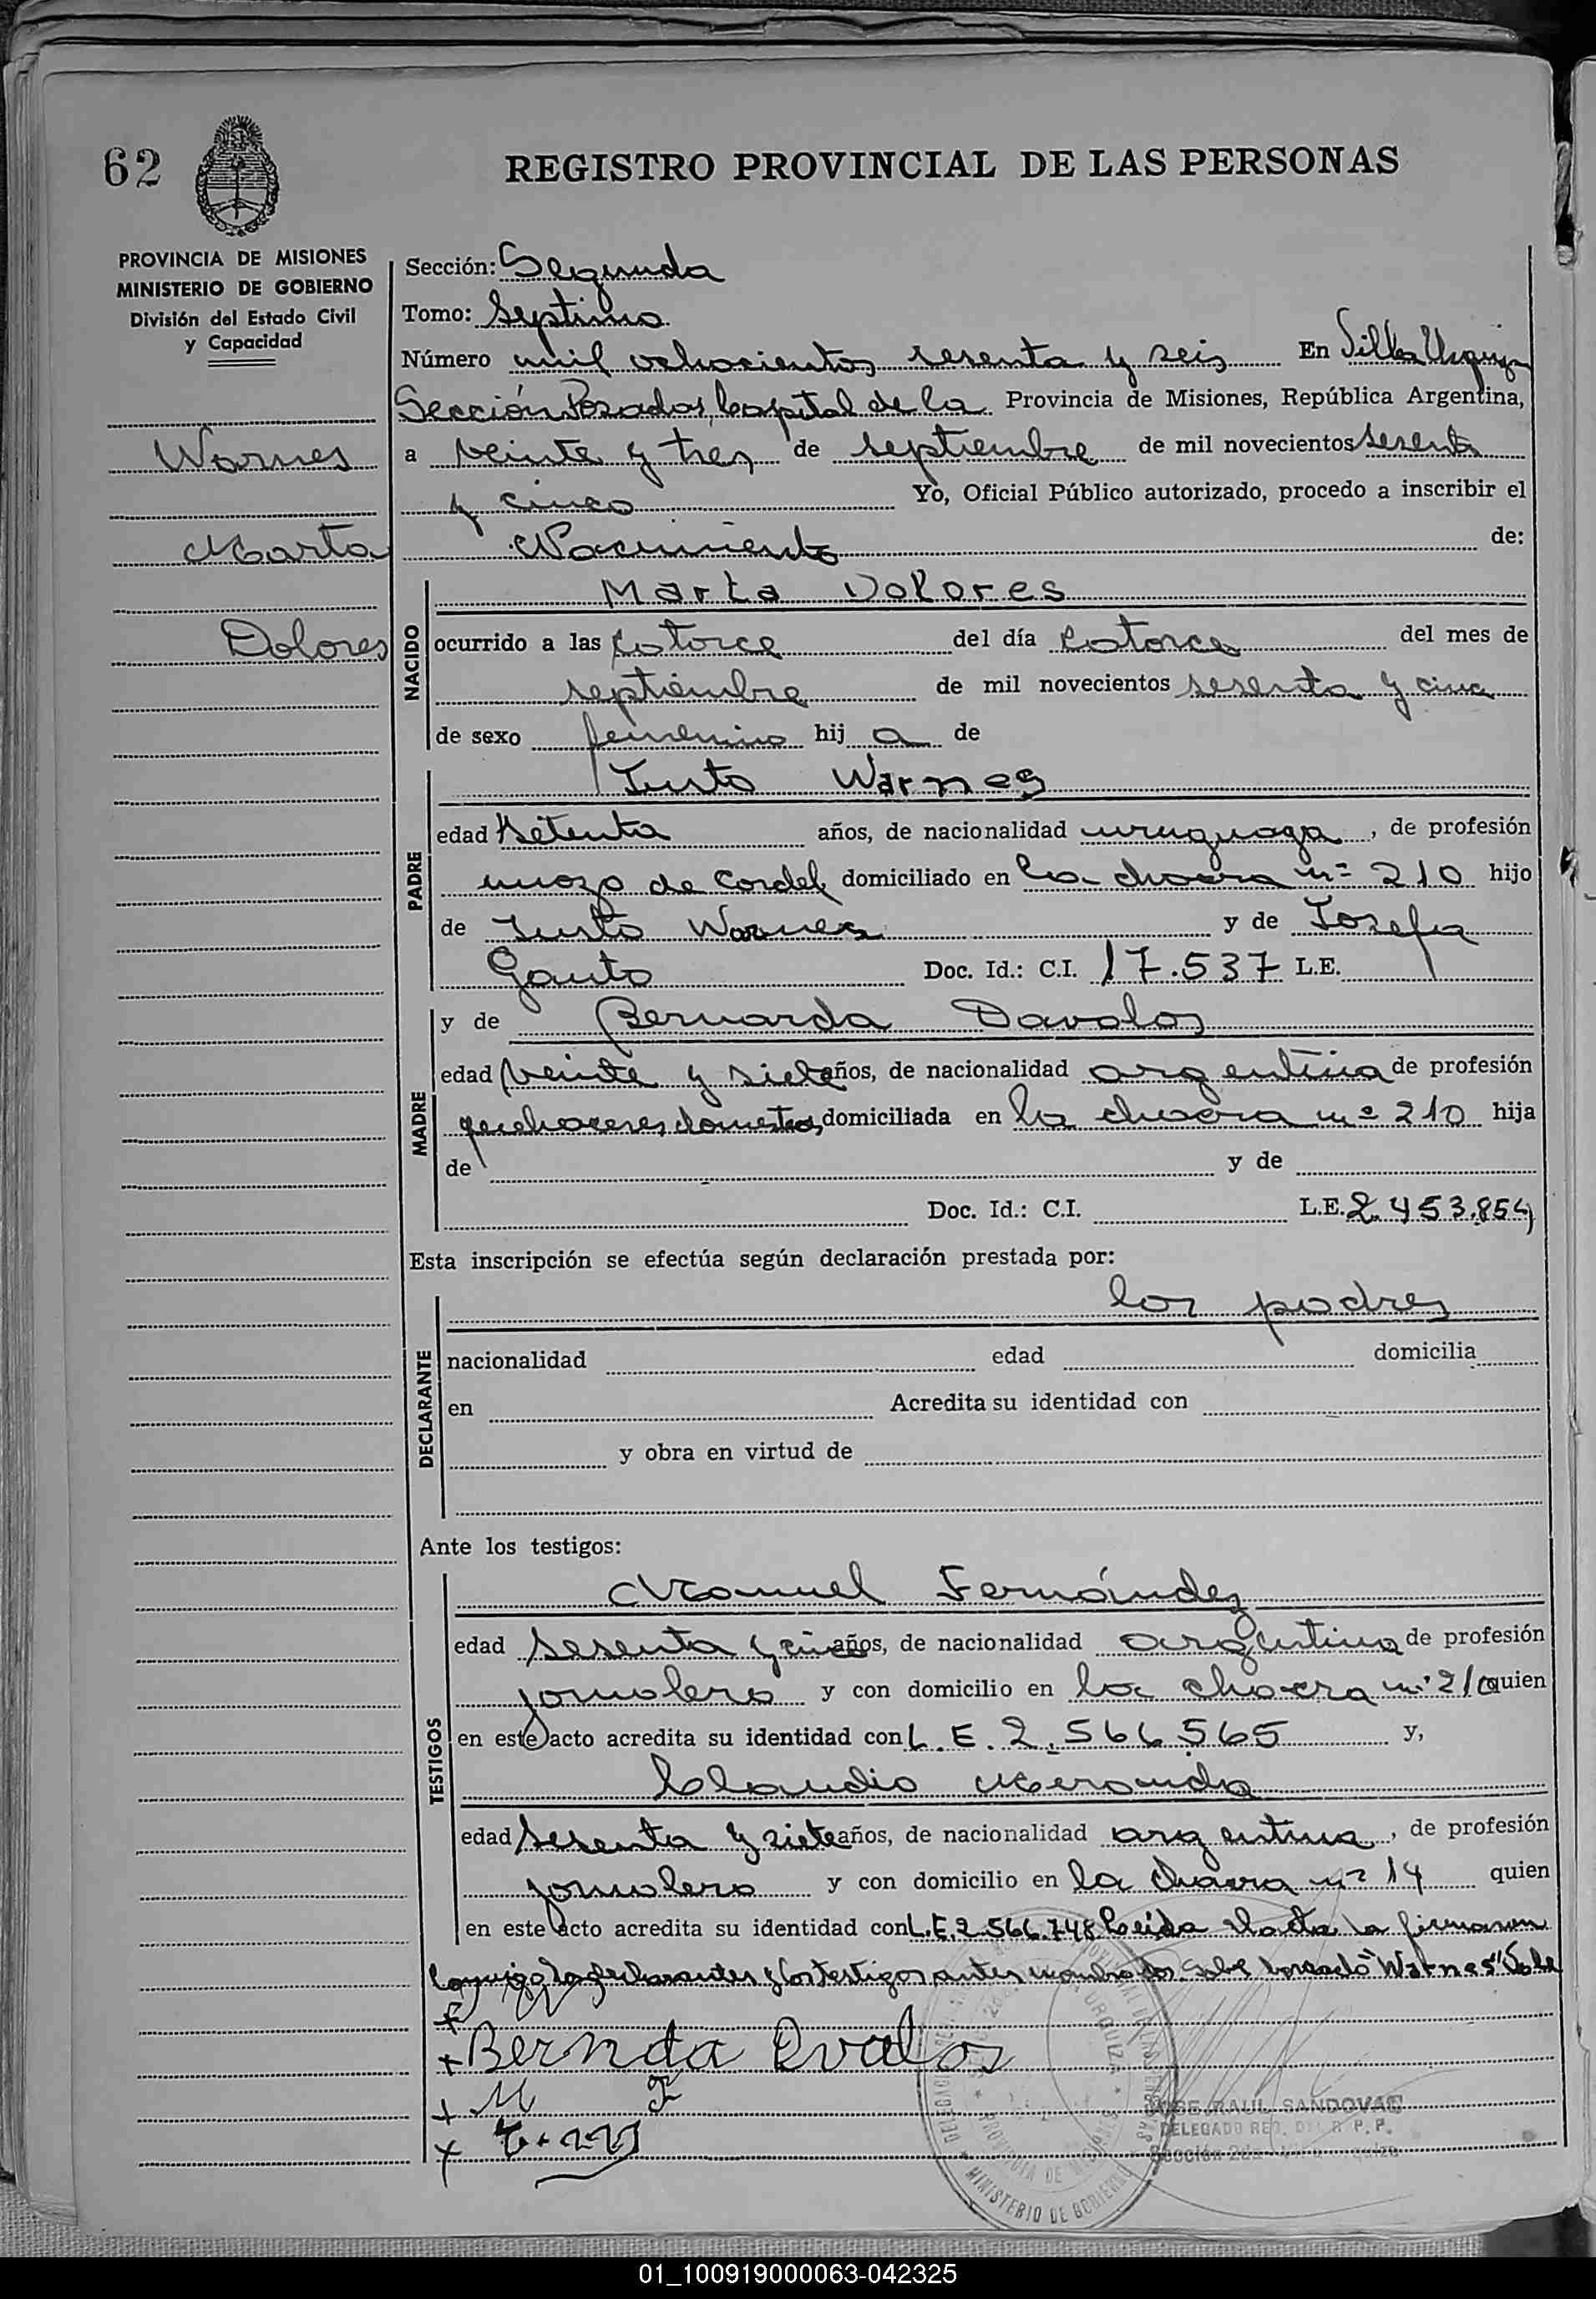 62
REGISTRO PROVINCIAL DE LAS PERSONAS
PROVINCIA DE MISIONES
MINISTERIO DE GOBIERNO
División del Estado Civil
y Capacidad
Warnes
Marta
Dolores
Sección: Segunda
Tomo: Septimo
Número mil ochocientos sesenta y seis En Villa Urquiza
Sección Posadas, Capital de la Provincia de Misiones, República Argentina,
a veinte y tres de septiembre de mil novecientos sesenta
y cinco Yo, Oficial Público autorizado, procedo a inscribir el
Nacimiento de:
NACIDO
Marta Dolores
ocurrido a las catorce del día catorce del mes de
septiembre de mil novecientos sesenta y cinco
de sexo femenino hij a de
PADRE
Justo Warnes
edad setenta años, de nacionalidad uruguaya, de profesión
mozo de cordel domiciliado en la chacra nº 210 hijo
de Justo Warnes y de Josefa
Gauto Doc. Id.: C.I. 17.537 L.E.
MADRE
y de Bernarda Davalos
edad veinte y siete años, de nacionalidad argentina de profesión
quehaceres domesticos domiciliada en la chacra nº 210 hija
de y de
Doc. Id.: C.I. L.E. 2.453.854
Esta inscripción se efectúa según declaración prestada por:
DECLARANTE
los padres
nacionalidad edad domicilia
en Acredita su identidad con
y obra en virtud de
Ante los testigos:
TESTIGOS
Manuel Fernández
edad sesenta y cinco años, de nacionalidad argentina de profesión
jornalero y con domicilio en la chacra nº 210 quien
en este acto acredita su identidad con L.E. 2.566.565 y,
Claudio Meranda
edad sesenta y siete años, de nacionalidad argentina, de profesión
jornalero y con domicilio en la chacra nº 14 quien
en este acto acredita su identidad con L.E. 2.566.748 Leida el acta la firmaron
conmigo los declarantes y los testigos antes nombrados. Sobre borrado "Warnes" Vale
Bernda Evalos
M F
JOSE RAUL SANDOVAL
DELEGADO REG. DEL R. P. P.
MINISTERIO DE GOBIERNO
PROVINCIA DE MISIONES
URQUIZA
01_100919000063-042325